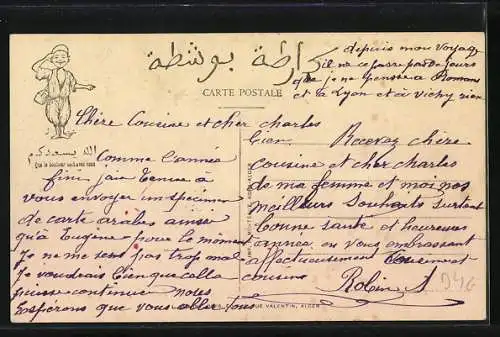 كارطة بوشطة
CARTE POSTALE
الله يسعدكم
Que le bonheur soit avec vous
Chère Cousine et cher charles
Comme l'année
fini j'aie tenue à
vous envoyer un spécimen
de carte arabes ainsi
qu'à Eugène pour le moment
Je ne me sens pas trop mal
Je voudrais bien que cella
puisse continuer nous
Espérons que vous aller tous
bien. Recevez chère
cousine et cher charles
de ma femme et moi nos
meilleurs souhaits surtout
bonne santé et heureuse
année en vous embrassant
affectueusement
cousins
Robin A
depuis mon voyage
il ne ce passe pas de jours
que je ne pense à Romans
et à Lyon et à vichy rien
VALENTIN, ALGER